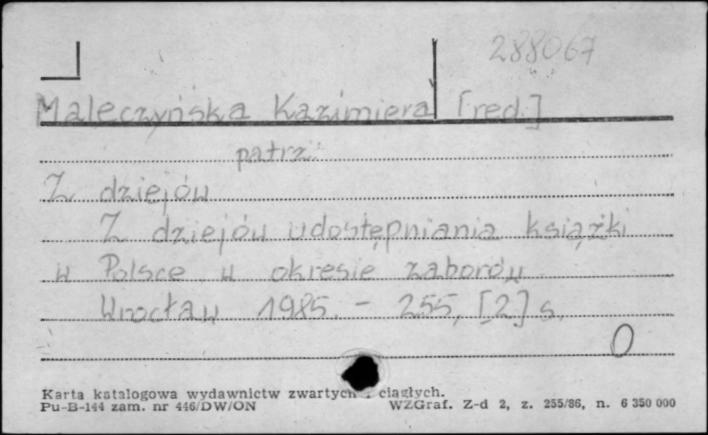 288067
Maleczyńska Kazimiera [red.]
patrz:
Z dziejów
Z dziejów udostępniania książki
w Polsce w okresie zaborów
Wrocław 1985. - 255, [2] s.
0
Karta katalogowa wydawnictw zwartych i ciągłych.
Pu-B-144 zam. nr 446/DW/ON WZGraf. Z-d 2, z. 255/86, n. 6 350 000